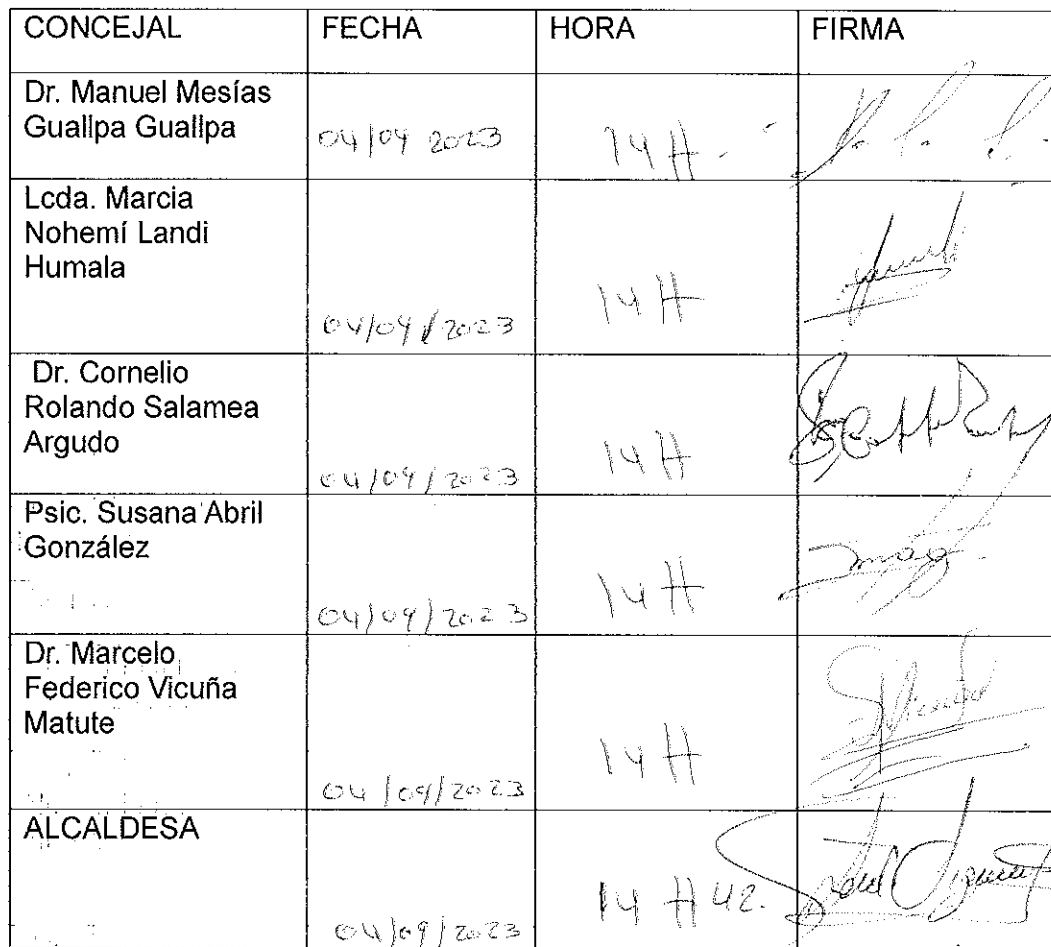 CONCEJAL FECHA HORA FIRMA
Dr. Manuel Mesías
Guallpa Guallpa 04/09 2023 14 H.
Lcda. Marcia
Nohemí Landi
Humala
04/09/2023 14 H
Dr. Cornelio
Rolando Salamea
Argudo
04/09/2023 14 H
Psic. Susana Abril
González
04/09/2023 14 H
Dr. Marcelo
Federico Vicuña
Matute
04/09/2023 14 H
ALCALDESA
04/09/2023 14 H 42.